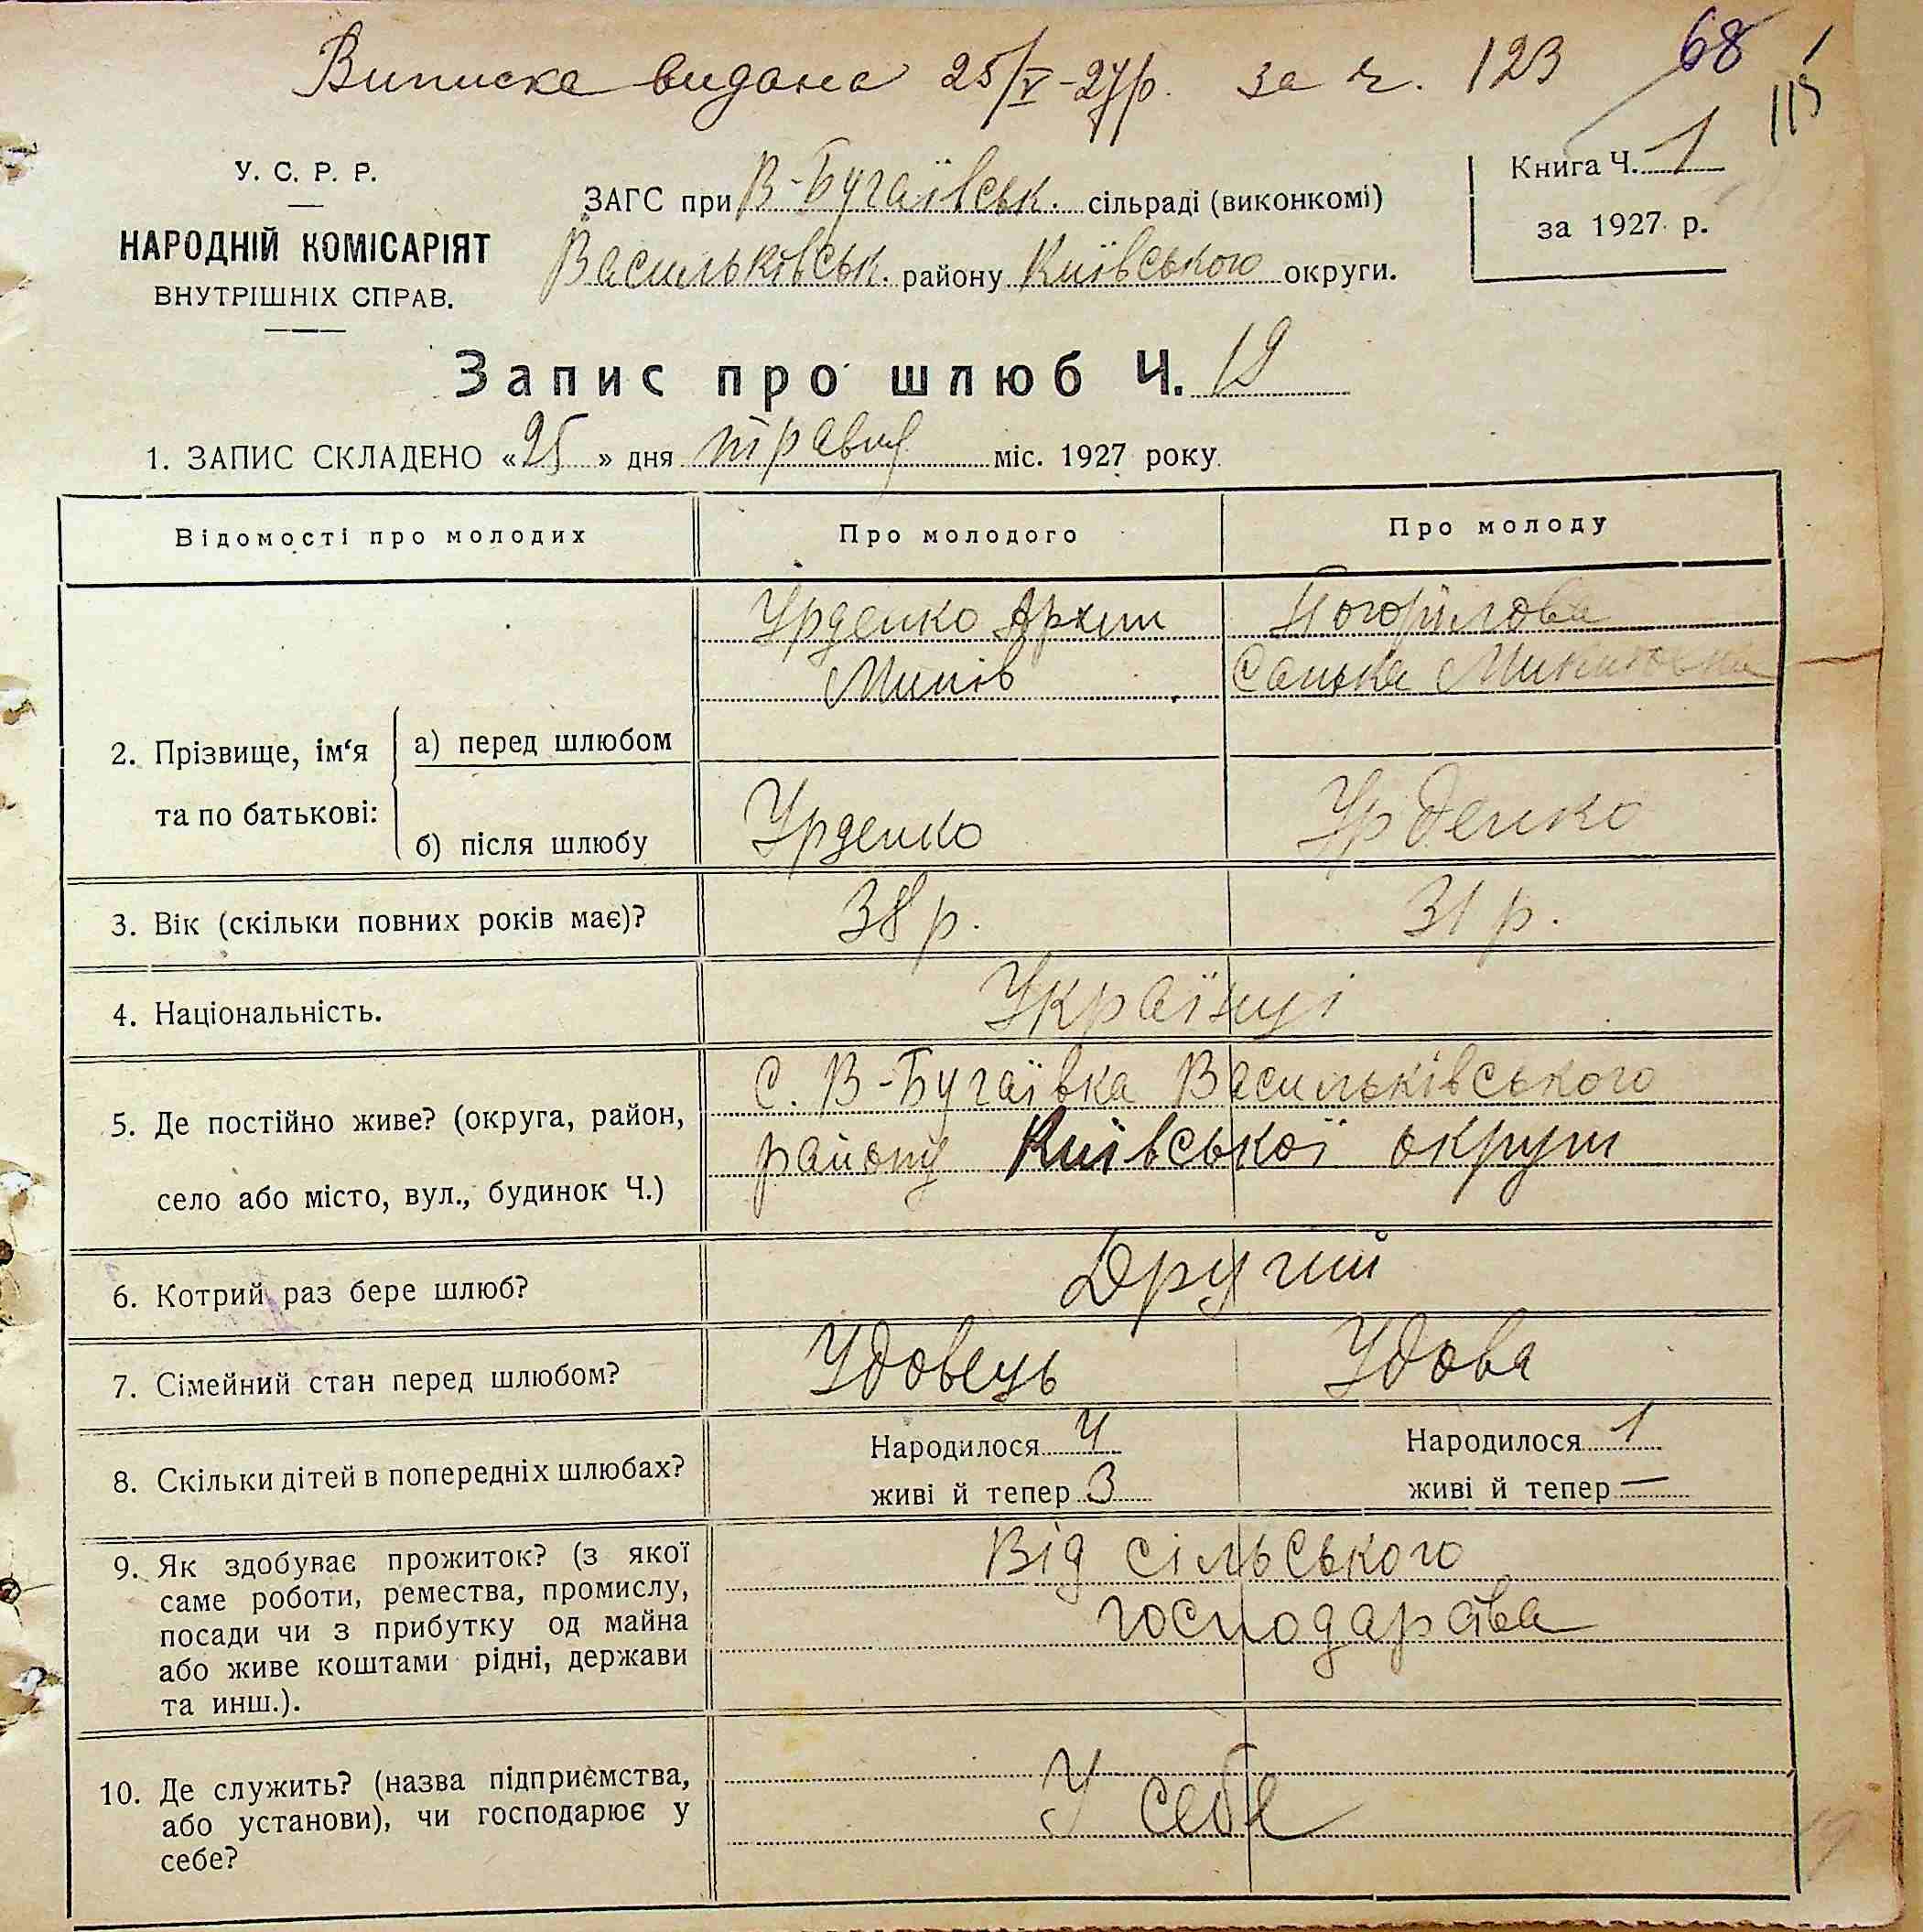 Виписка видана 25/V-27р. за ч. 123
68
113
У. С. Р. Р.
НАРОДНІЙ КОМІСАРІЯТ
ВНУТРІШНІХ СПРАВ.
ЗАГС при В-Бугаївськ. сільраді (виконкомі)
Васильковськ. району Київського округи.
Книга Ч. 1
за 1927 р.
Запис про шлюб Ч. 19
1. ЗАПИС СКЛАДЕНО «25» дня травня міс. 1927 року
Відомості про молодих
Про молодого
Про молоду
2. Прізвище, ім‘я
та по батькові:
а) перед шлюбом
Урденко Архип
Погорілова
Санька
б) після шлюбу
Урденко
Урденко
3. Вік (скільки повних років має)?
38 р.
31 р.
4. Національність.
Українці
5. Де постійно живе? (округа, район,
село або місто, вул., будинок Ч.)
С. В-Бугаївка Васильківського
району Київської округи
6. Котрий раз бере шлюб?
Другий
7. Сімейний стан перед шлюбом?
Удовець
Удова
8. Скільки дітей в попередніх шлюбах?
Народилося 4
живі й тепер 3
Народилося 1
живі й тепер —
9. Як здобуває прожиток? (з якої
саме роботи, ремества, промислу,
посади чи з прибутку од майна
або живе коштами рідні, держави
та инш.).
Від сільського
господарства
10. Де служить? (назва підприємства,
або установи), чи господарює у
себе?
У себе